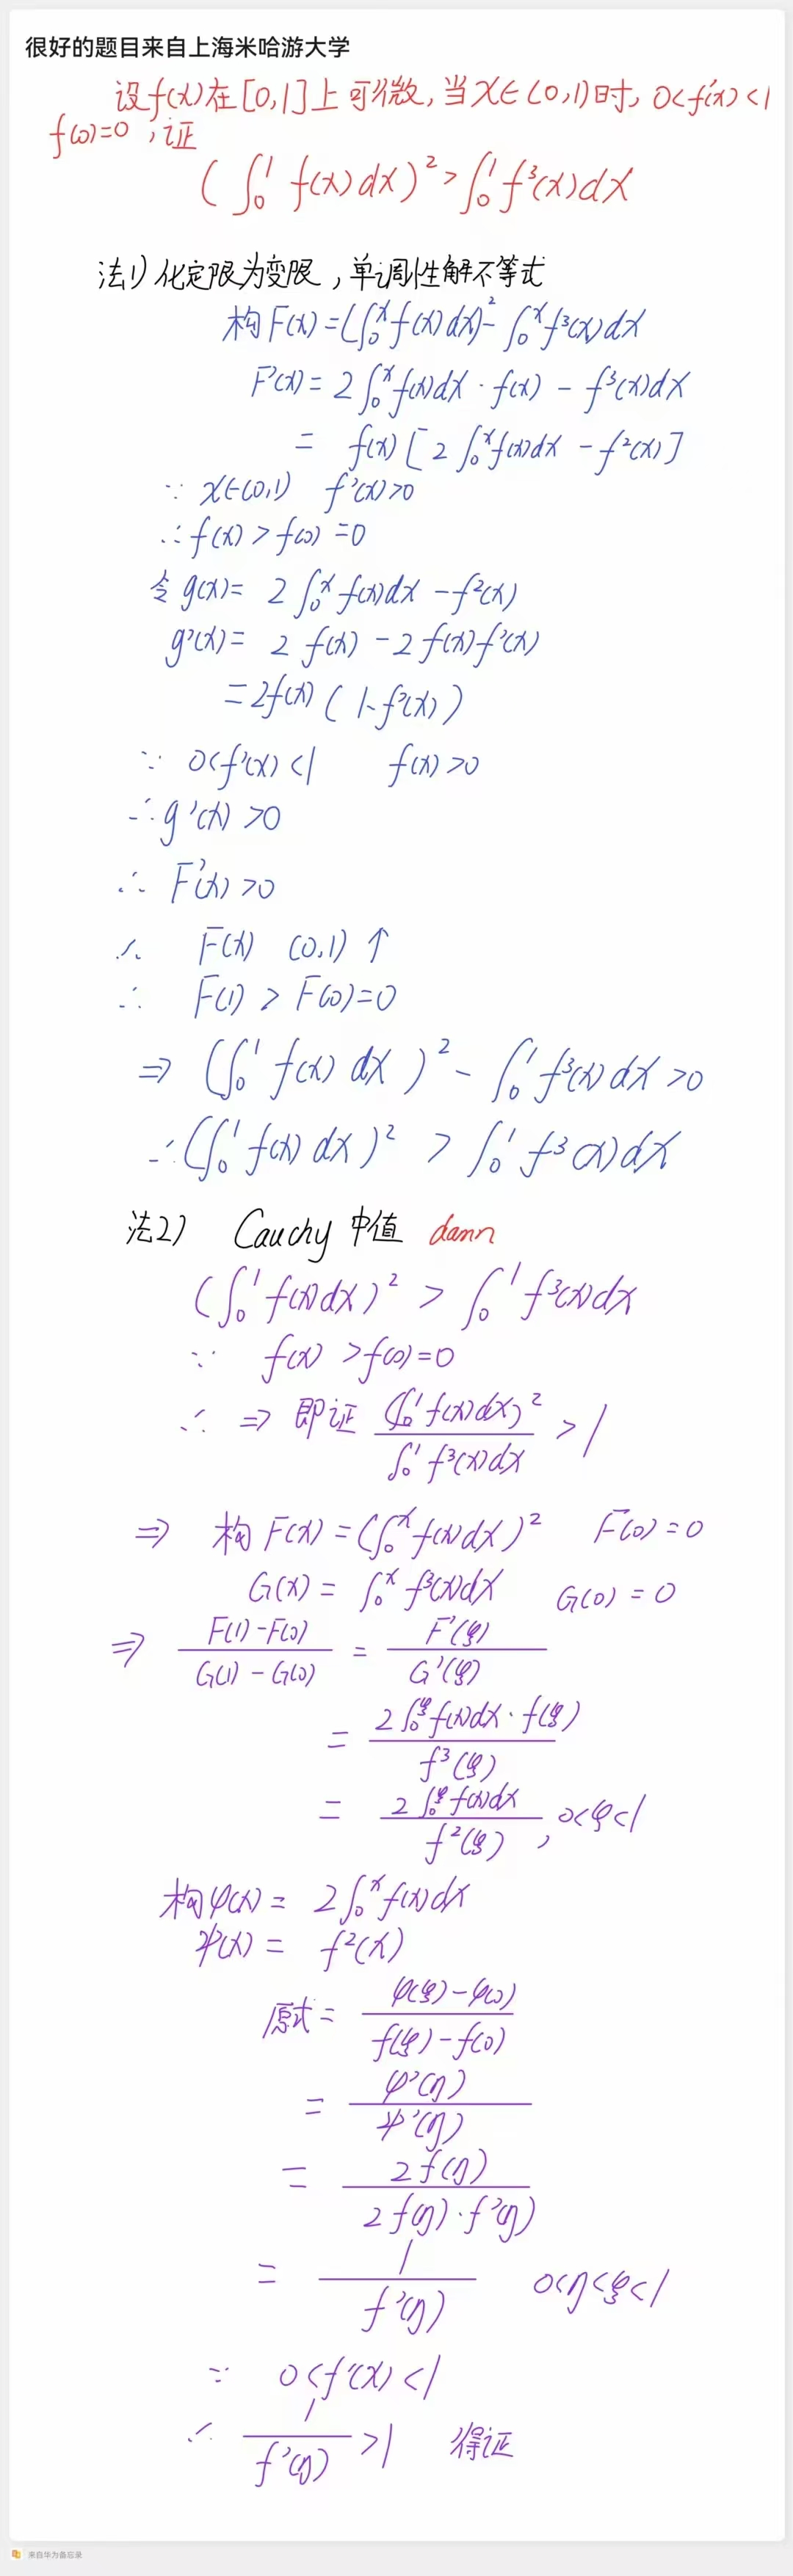 很好的题目来自上海米哈游大学
设f(x)在[0,1]上可微,当x∈(0,1)时,0<f'(x)<1
f(0)=0,证
(∫₀¹ f(x)dx)²>∫₀¹ f³(x)dx
法1)化定限为变限,单调性解不等式
构F(x)=(∫₀ˣf(x)dx)²-∫₀ˣf³(x)dx
F'(x)=2∫₀ˣf(x)dx·f(x)-f³(x)dx
=f(x)[2∫₀ˣf(x)dx-f²(x)]
∵ x∈(0,1) f'(x)>0
∴f(x)>f(0)=0
令g(x)=2∫₀ˣf(x)dx-f²(x)
g'(x)=2f(x)-2f(x)f'(x)
=2f(x)(1-f'(x))
∵ 0<f'(x)<1 f(x)>0
∴g'(x)>0
∴ F'(x)>0
∴ F(x) (0,1)↑
∴ F(1)>F(0)=0
⇒(∫₀¹ f(x)dx)²-∫₀¹ f³(x)dx>0
∴(∫₀¹ f(x)dx)²>∫₀¹ f³(x)dx
法2) Cauchy 中值 dann
(∫₀¹ f(x)dx)²>∫₀¹ f³(x)dx
∵ f(x)>f(0)=0
∴ ⇒ 即证 (∫₀¹f(x)dx)²/∫₀¹f³(x)dx>1
⇒ 构F(x)=(∫₀ˣf(x)dx)² F(0)=0
G(x)=∫₀ˣf³(x)dx G(0)=0
⇒ F(1)-F(0)/G(1)-G(0)=F'(ξ)/G'(ξ)
=2∫₀^ξ f(x)dx·f(ξ)/f³(ξ)
=2∫₀^ξ f(x)dx/f²(ξ),0<ξ<1
构φ(x)=2∫₀ˣf(x)dx
ψ(x)=f²(x)
原式=φ(ξ)-φ(0)/f(ξ)-f(0)
=φ'(η)/ψ'(η)
=2f(η)/2f(η)·f'(η)
=1/f'(η) 0<η<ξ<1
∵ 0<f'(x)<1
∴ 1/f'(η)>1 得证
来自华为备忘录